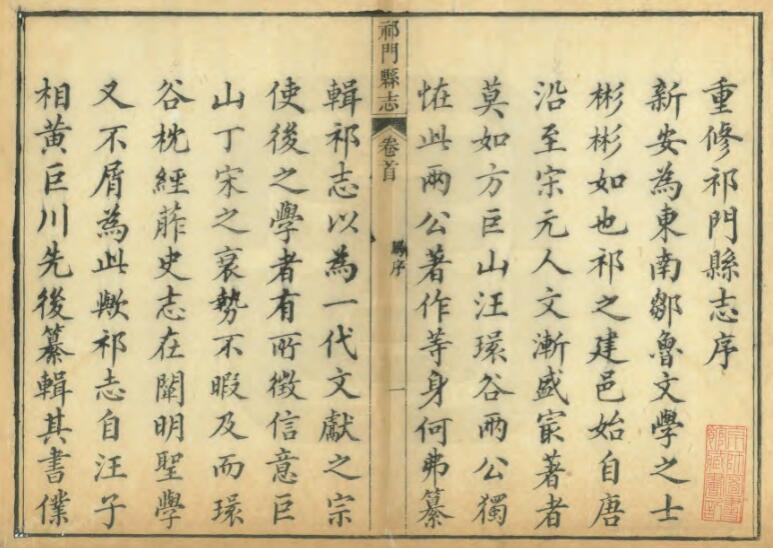 重修祁門縣志序
新安為東南鄒魯文學之士
彬彬如也祁之建邑始自唐
沿至宋元人文漸盛㝡著者
莫如方巨山汪環谷兩公獨
恠此兩公著作等身何弗纂
祁門縣志
卷首
序
一
輯祁志以為一代文獻之宗
使後之學者有所徵信意巨
山丁宋之衰勢不暇及而環
谷枕經葄史志在闡明聖學
又不屑為此歟祁志自汪子
相黃巨川先後纂輯其書僅